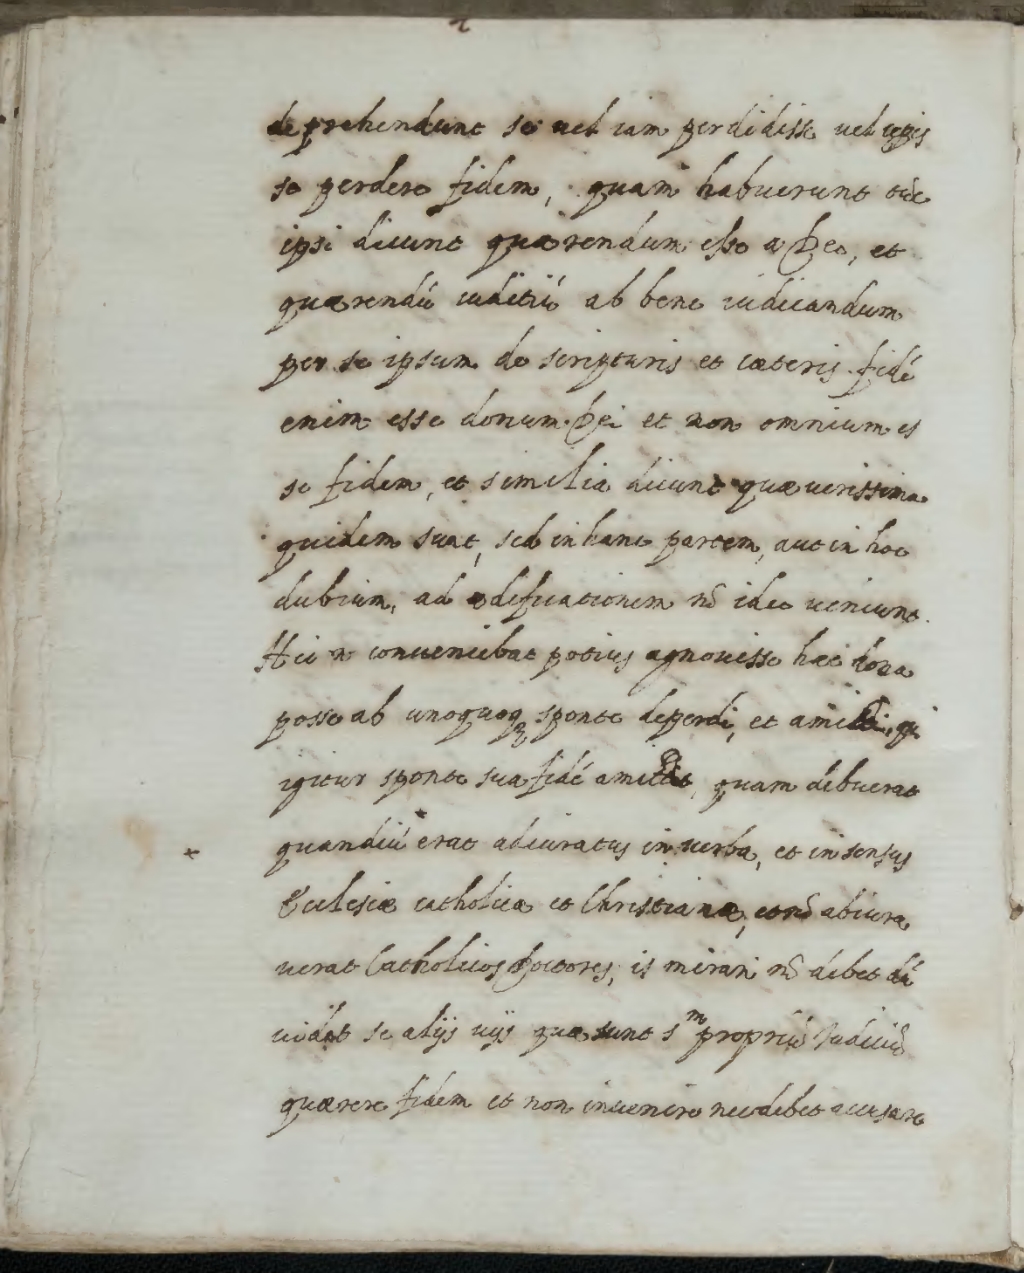 deprehendunt se uel iam perdidisse uel
se perdere fidem, quam habuerunt
ipsi dicunt quærendum esse a Deo, et
quærendú iuditiú ab bene iudicandum
per se ipsum de scripturis et cæteris fidé
enim esse donum Dei et non omnium es
se fidem, et similia dicunt quæ uerissima
quidem sunt, sed in hanc partem, aut in hoc
dubium, ad ædificationem nõ ideo ueniunt.
conueniebat potius agnouisse hæc dona
posse ab unoquoq sponte deperdi, et amitti, qui
igitur sponte sua fidé amittit, quam debuerat
quandiú erat adiuratus in uerba, et in sensus
Ecclesiæ catholicæ et Christianæ, et nõ abiura
uerat Catholicos Doctores, is mirari nõ debet dú
uidet se alijs uijs quæ sunt s^m propriú Iudiciú
quærere fidem et non inuenire nec debet accusare